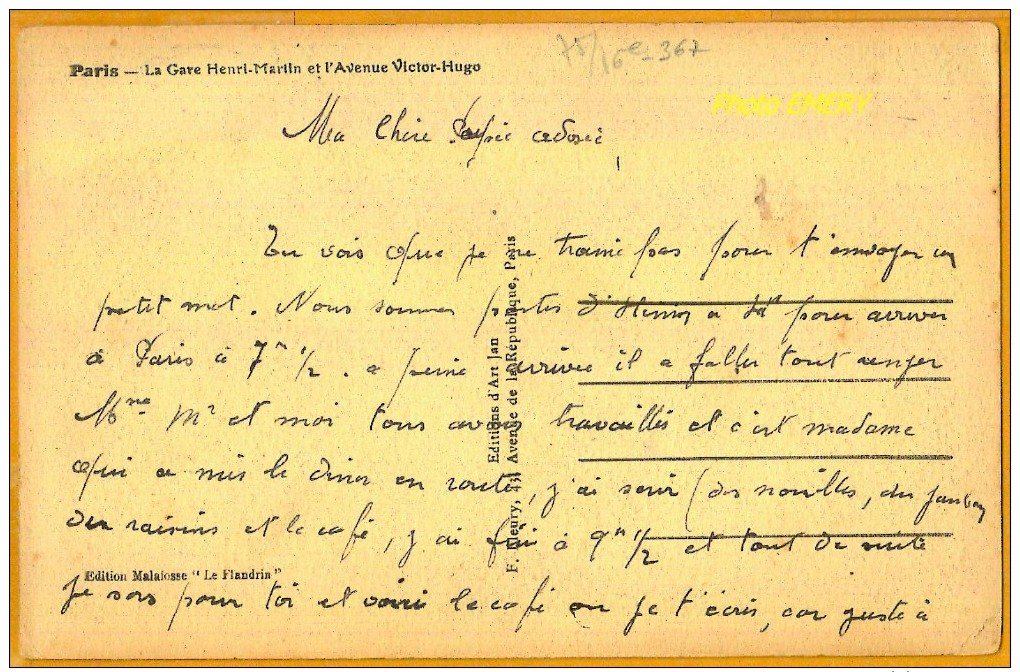 75/16e-367
Paris — La Gare Henri-Martin et l'Avenue Victor-Hugo
Photo EMERY
Ma Chère adorée
Tu vois que je ne traine pas pour t'envoyer un
petit mot. Nous sommes partis à pour arriver
à Paris à 7h 1/2. a peine arrivée il a fallu tout ranger
Mme Mr et moi tous avons travaillés et c'est madame
qui a mis le diner en route, j'ai servi (des nouilles, du jambon
du raisins et le café, j'ai fini à 9h 1/2 et tout de suite
Je sors pour toi et voici le café ou je t'écris, car juste à
Editions d'Art Jan
F. Fleury, 43, Avenue de la République, Paris
Edition Malafosse "Le Flandrin"